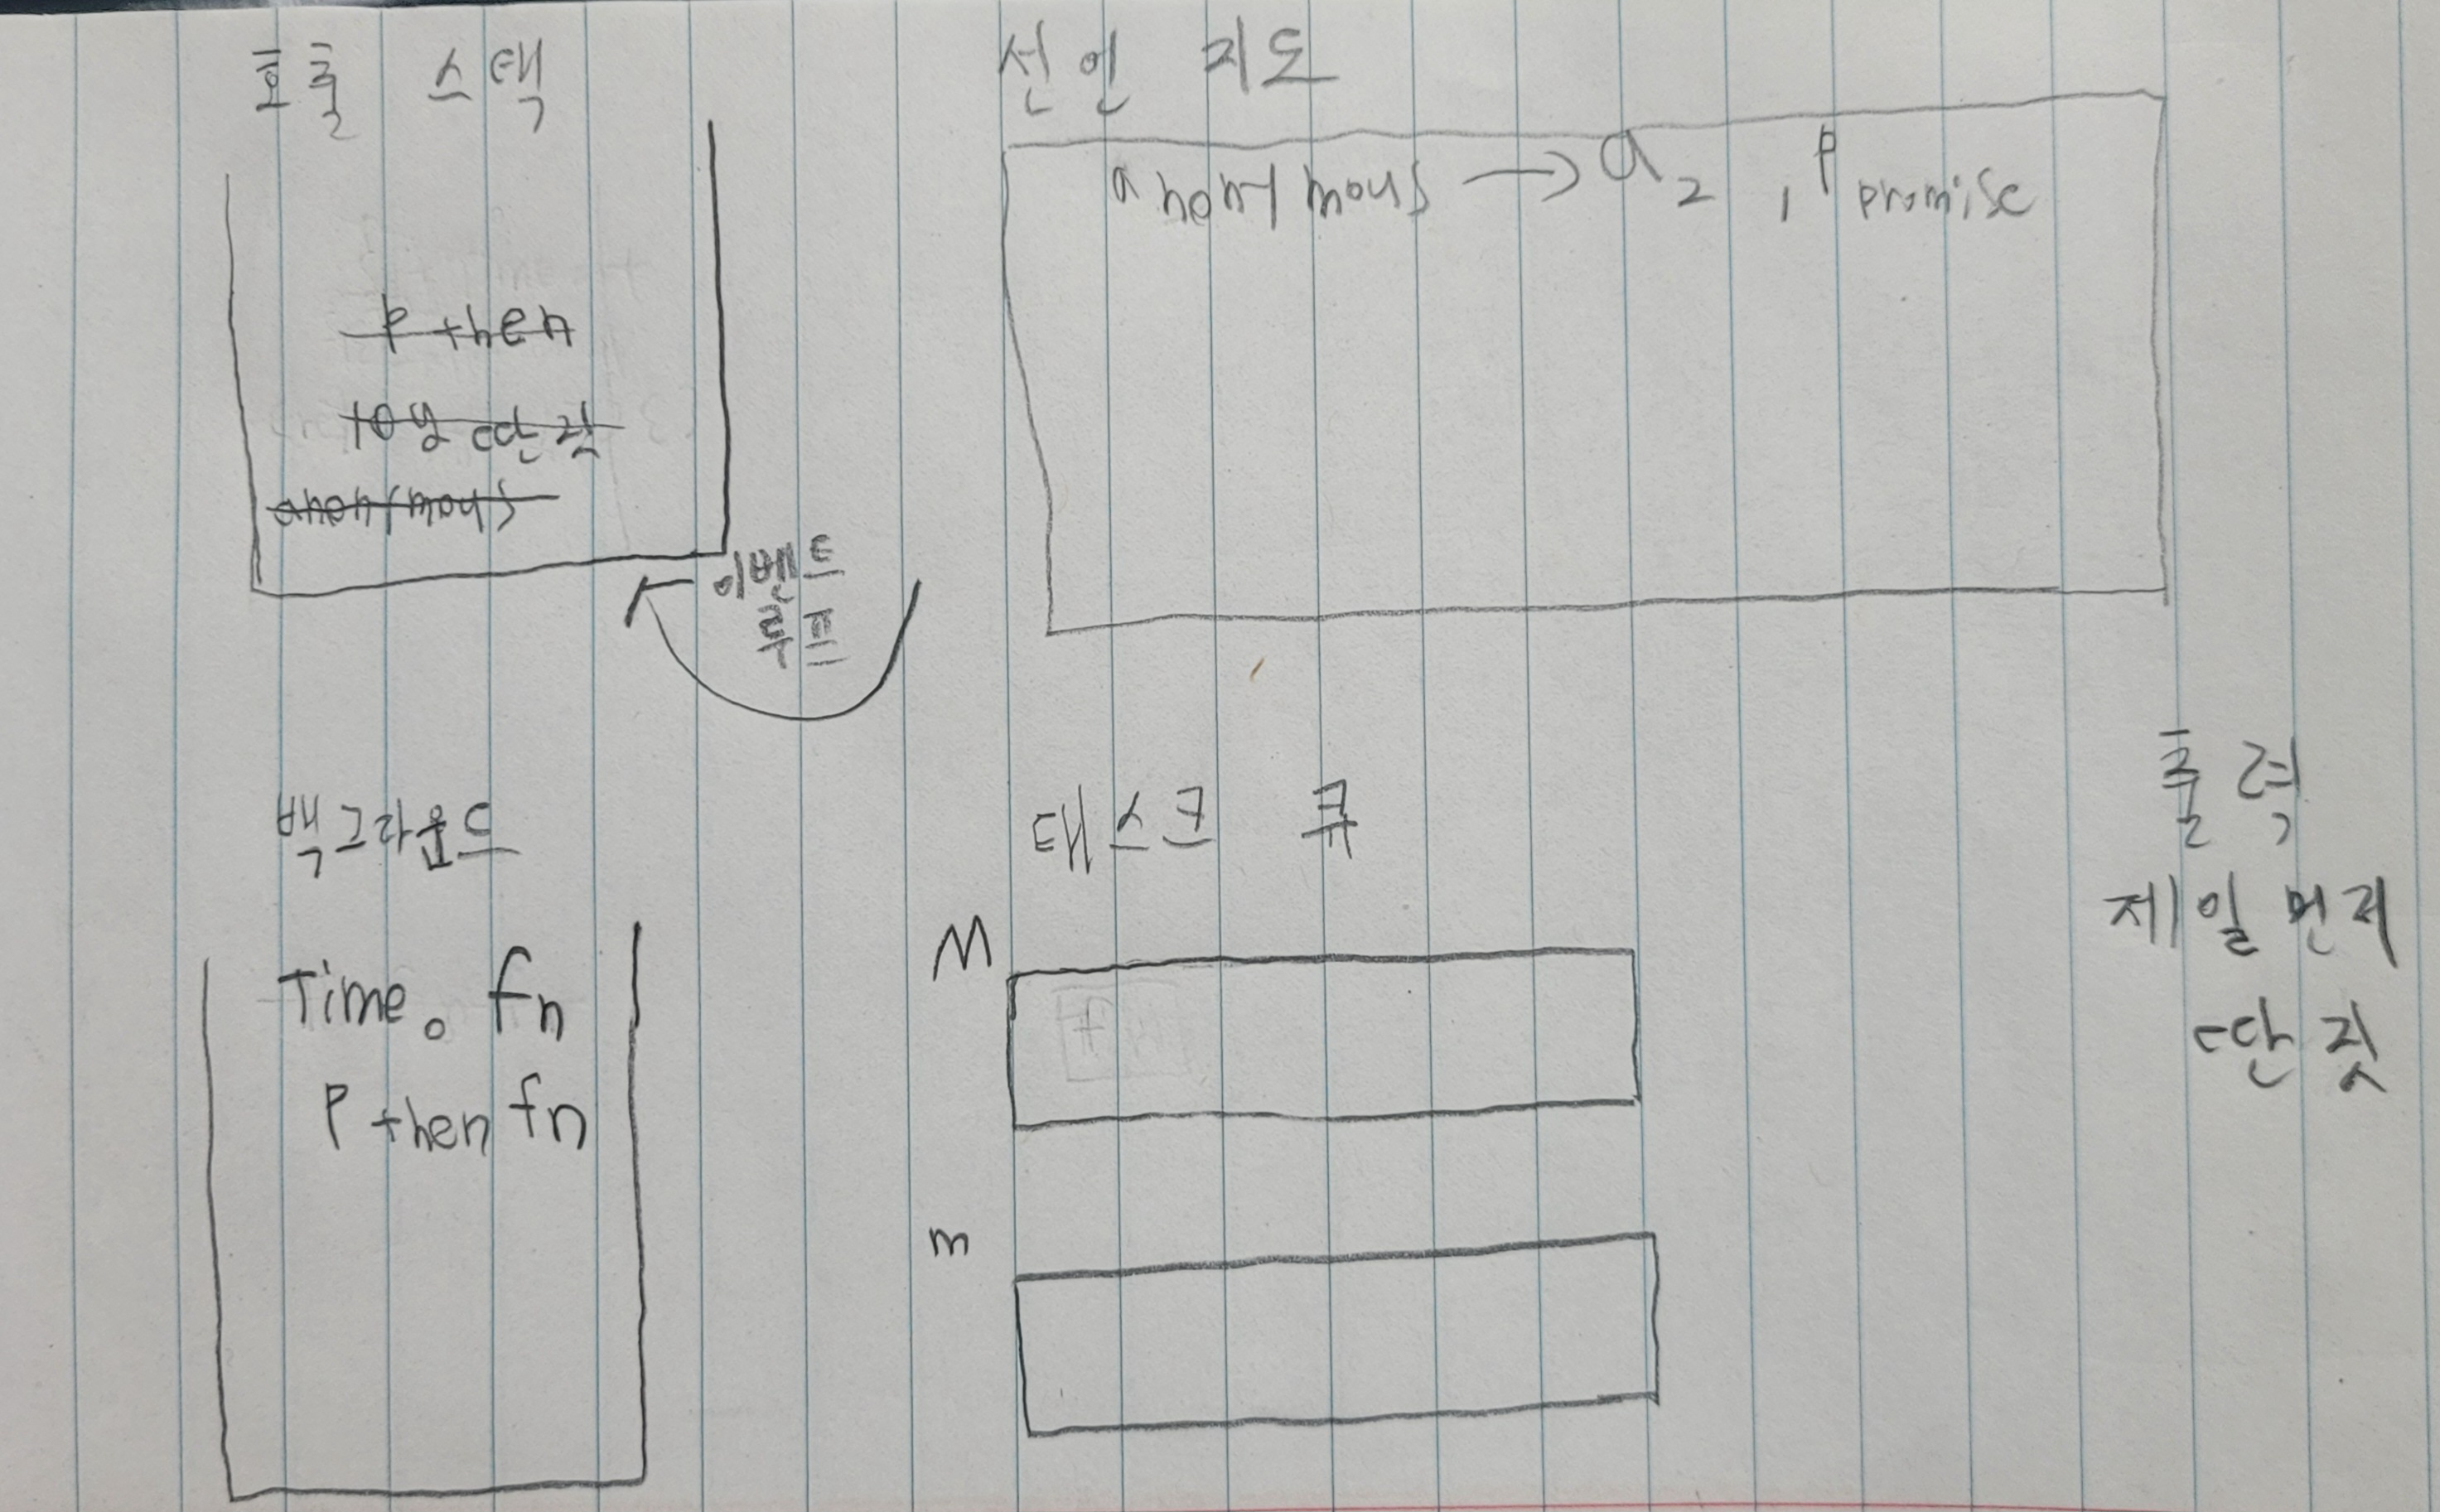 호출 스택
p then
log 딴짓
anonymous
이벤트
루프
선언 지도
anonymous → a 2 , p promise
백그라운드
Time. fn
p then fn
태스크 큐
M
m
출력
제일 먼저
딴짓